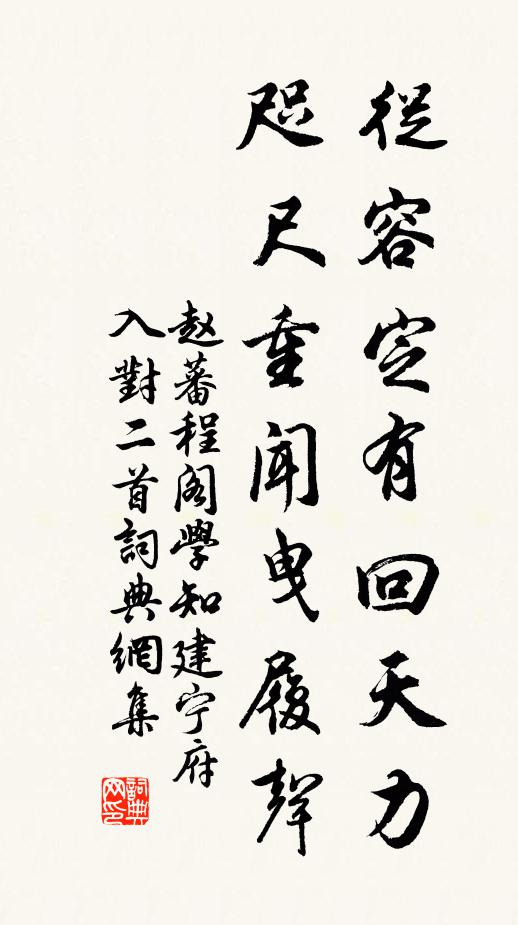 從容定有回天力
咫尺重聞曳履聲
赵蕃程阁學知建宁府
入對二首詞典網集
詞典
网印